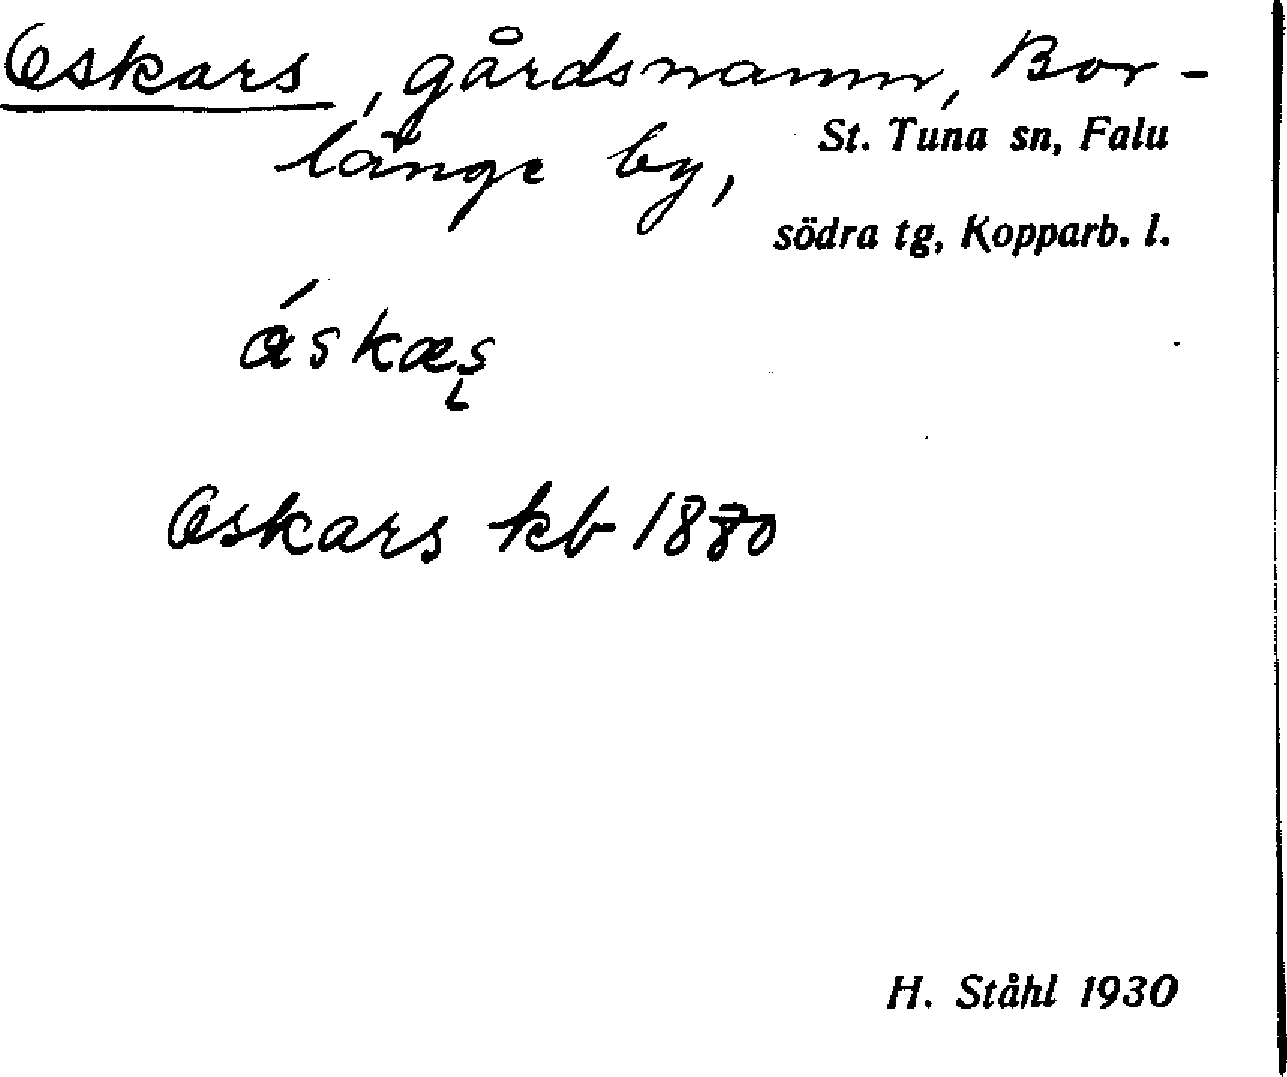 Oskars, gårdsnamn, Bor-
länge by, St. Tuna sn, Falu
södra tg, Kopparb. l.
Oskars kb 1880
H. Ståhl 1930